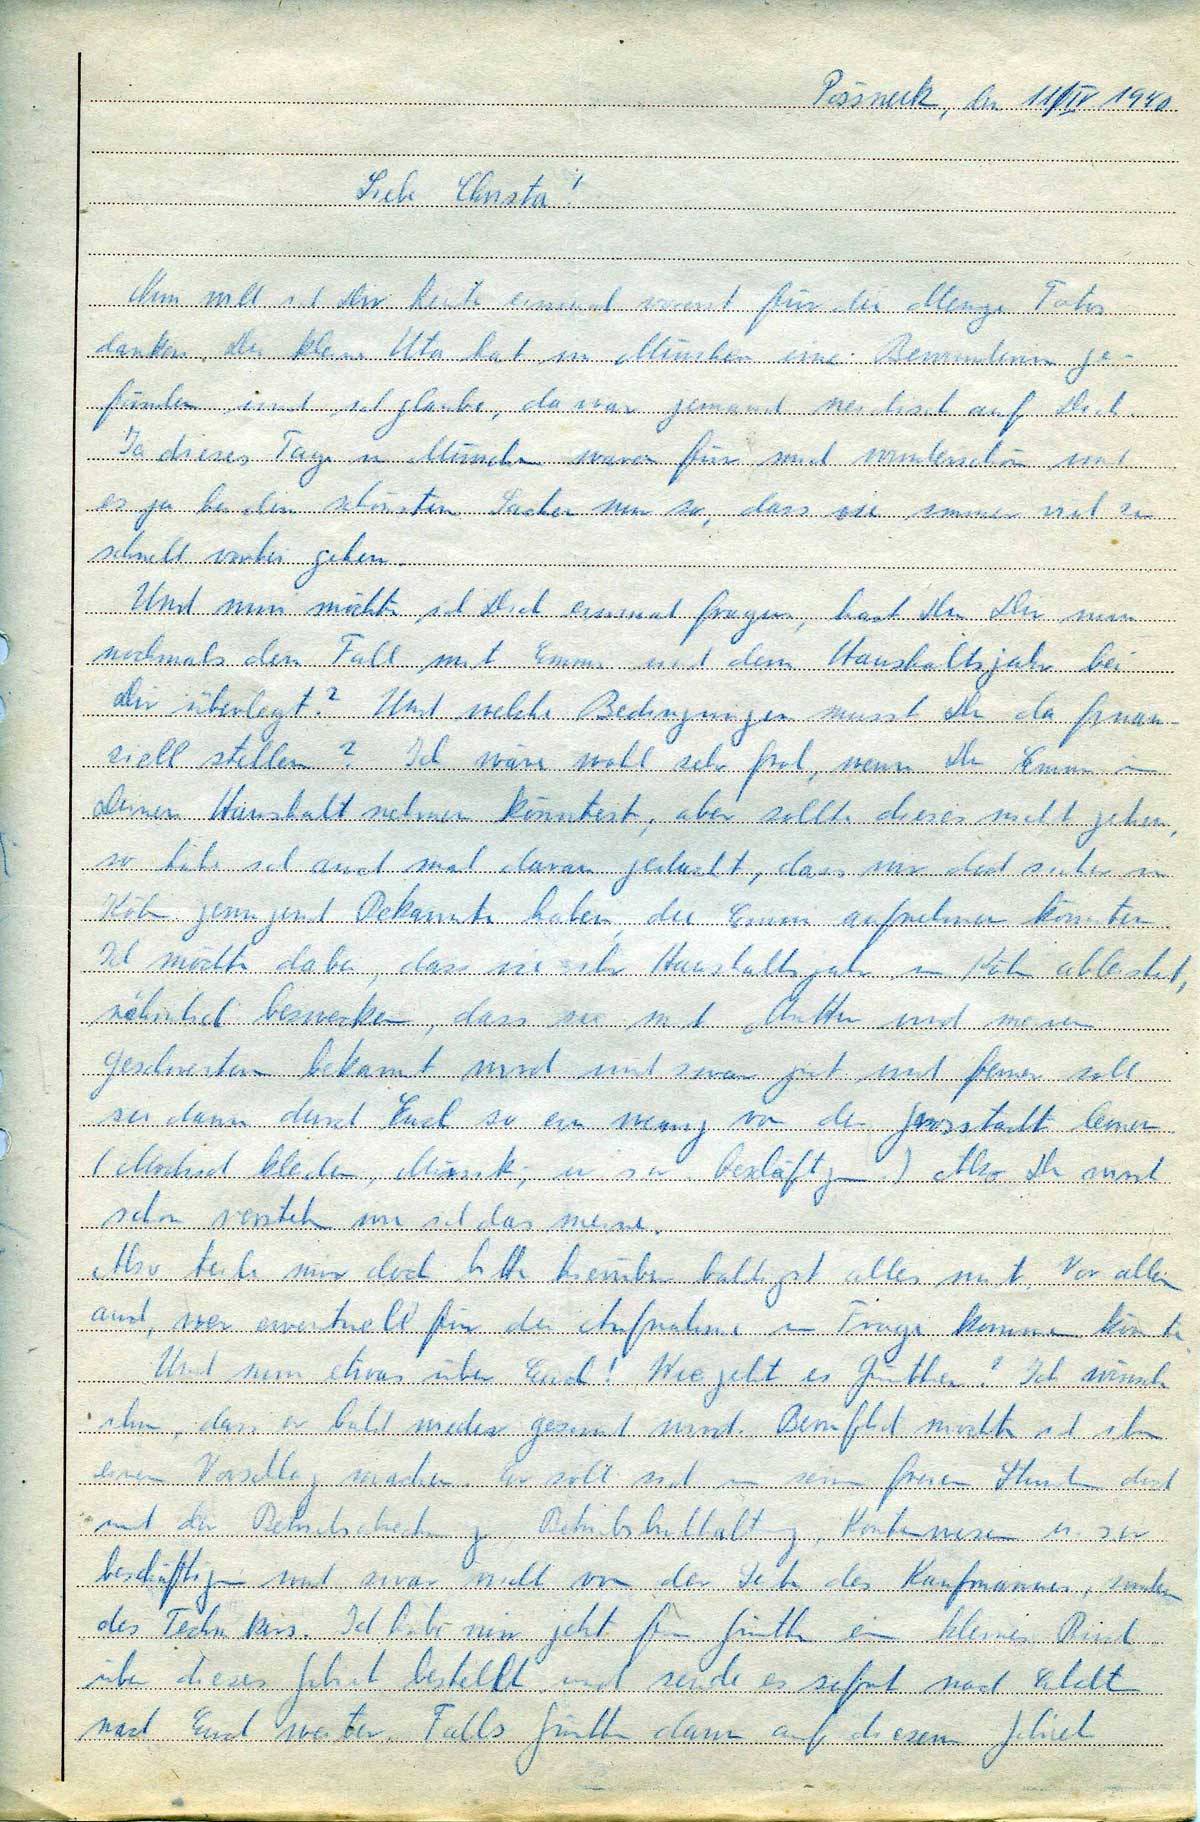 Pössneck, den 11/IV 1940
Liebe Christa!
Nun will ich Dir heute einmal vorerst für die Menge Fotos
danken. Die kleine Uta hat in München eine Bewunderin ge-
funden und ich glaube, da war jemand neidisch auf Dich.
Ja dieses Tage in München waren für mich wunderschön und
es ja bei den schönsten Sachen nun so, dass sie immer viel zu
schnell vorbei gehen.
Und nun möchte ich Dich einmal fragen, hast Du Dir nun
nochmals den Fall mit Emmi und dem Haushaltsjahr bei
Dir überlegt? Und welche Bedingungen musst Du da finan-
ziell stellen? Ich wäre wohl sehr froh, wenn Du Emmi in
Deinen Haushalt nehmen könntest, aber sollte dieses nicht gehen,
so habe ich auch mal daran gedacht, dass wir doch sicher in
Köln genügend Bekannte haben, die Emmi aufnehmen könnten.
Ich möchte dabei, dass sie ihr Haushaltsjahr in Köln ableistet,
nämlich bezwecken, dass sie mit Mutter und meinen
Geschwistern bekannt wird und zwar gut und ferner soll
sie dann durch Euch so ein wenig von der Grosstadt lernen
(Modisch kleiden, Musik, u.s.w. beschäftigen) Also Du wirst
schon verstehen wie ich das meine.
Also teile mir doch bitte hierüber baldigst alles mit. Vor allem
auch, wer eventuell für die Aufnahme in Frage kommen könnte.
Und nun etwas über Euch! Wie geht es Günther? Ich wünsche
ihm, dass er bald wieder gesund wird. Beruflich möchte ich ihm
einen Vorschlag machen. Er soll sich in seinen freien Stunden doch
mit der Betriebsbuchhaltung, Kontenwesen u.s.w.
beschäftigen und zwar nicht von der Seite des Kaufmannes, sondern
des Technikers. Ich habe mir jetzt für Günther ein kleines
über dieses Gebiet bestellt und sende es sofort nach Erhalt
nach Euch weiter. Falls Günther dann auf diesem Gebiet